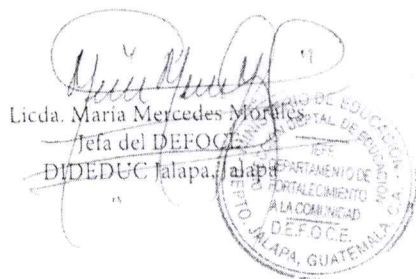 Licda. María Mercedes Morales
Jefa del DEFOCE
DIDEDUC Jalapa, Jalapa
JEFE
DEPARTAMENTO DE
FORTALECIMIENTO
A LA COMUNIDAD
D.E.FO.C.E.
DEPTO. JALAPA, GUATEMALA, C.A.